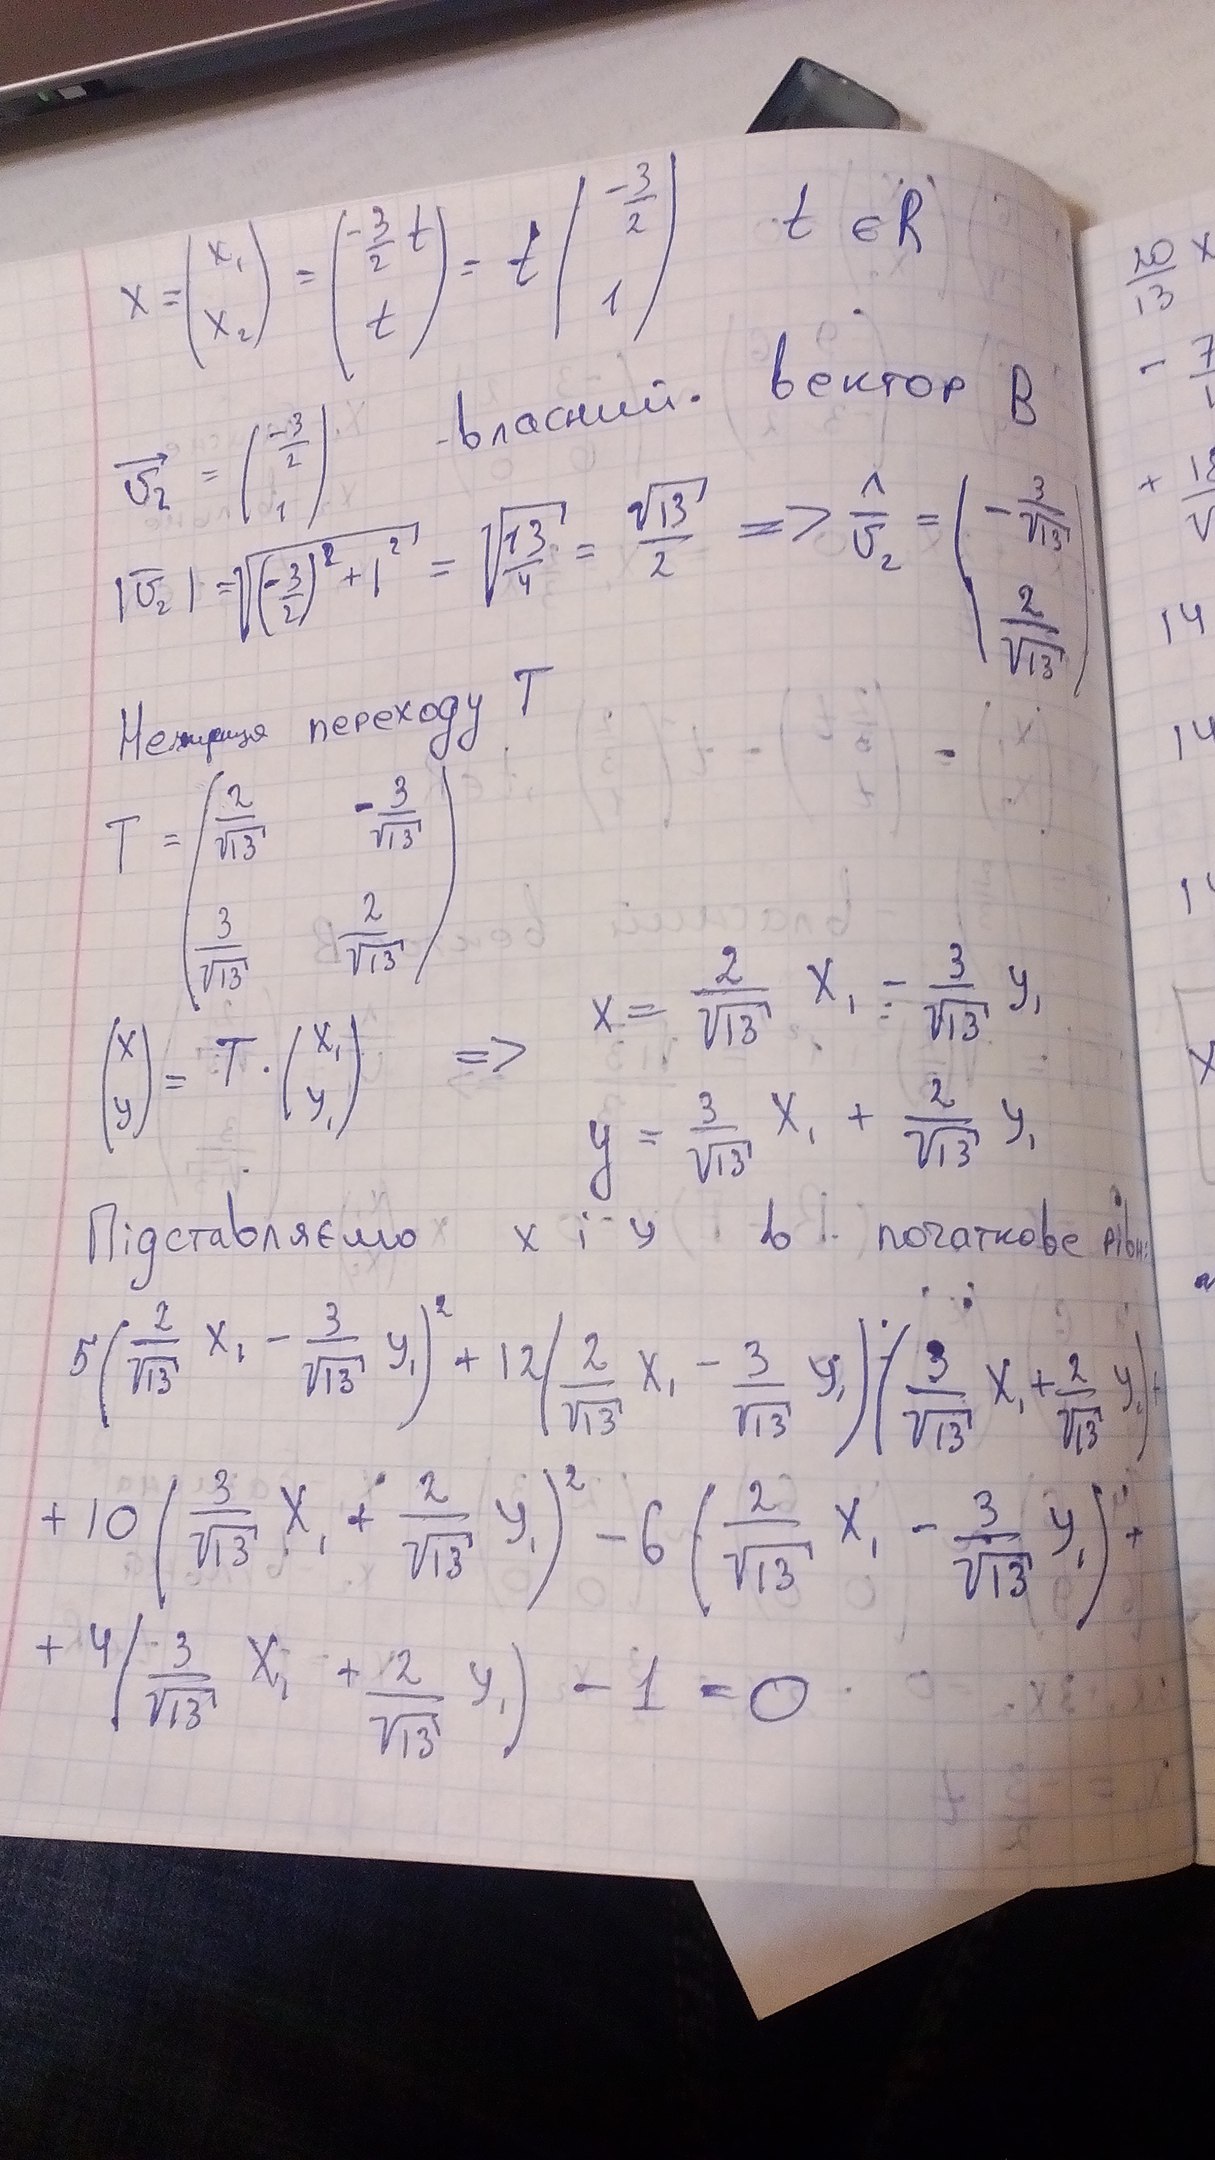 x = (x₁ x₂) = (-3/2 t t) = t (-3/2 1) t ∈ R
v₂ = (-3/2 1) - власний. вектор B
|v₂| = √((-3/2)² + 1²) = √(13/4) = √13/2 => v̂₂ = (-3/√13 2/√13)
переходу T
T = (2/√13 -3/√13 3/√13 2/√13)
(x y) = T · (x₁ y₁) => x = 2/√13 x₁ - 3/√13 y₁
y = 3/√13 x₁ + 2/√13 y₁
Підставляємо x і y в початкове рівн
5(2/√13 x₁ - 3/√13 y₁)² + 12(2/√13 x₁ - 3/√13 y₁)·(3/√13 x₁ + 2/√13 y₁) +
+ 10(3/√13 x₁ + 2/√13 y₁)² - 6(2/√13 x₁ - 3/√13 y₁) +
+ 4(3/√13 x₁ + 2/√13 y₁) - 1 = 0
20/13 x
- 7
+ 12
14
14